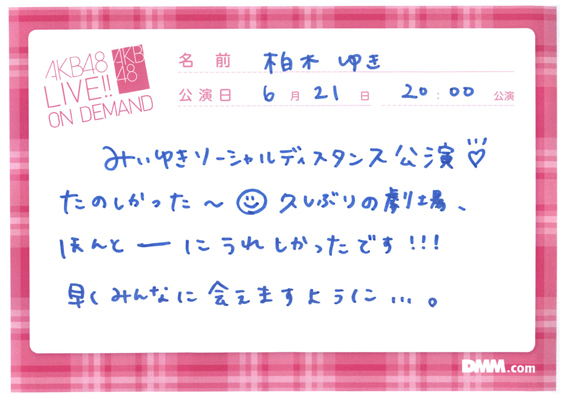 AKB48
LIVE!!
ON DEMAND
AKB
48
名前 柏木 ゆき
公演日 6月21日 20:00公演
みぃゆきソーシャルディスタンス公演♡
たのしかった〜☺久しぶりの劇場、
ほんとーにうれしかったです!!!
早くみんなに会えますように…。
DMM.com